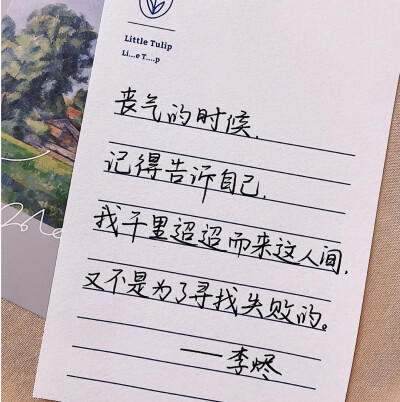 Little Tulip
Li...e T....p
丧气的时候,
记得告诉自己,
我千里迢迢而来这人间,
又不是为了寻找失败的。
——李烬